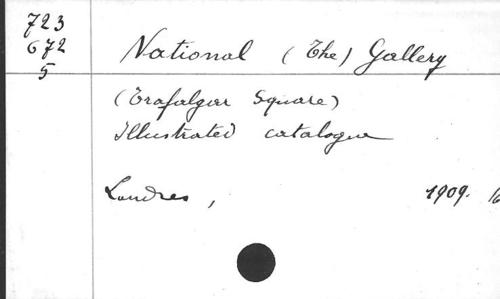 723
672
5
National (The) Gallery
(Trafalgar Square)
Illustrated catalogue
Londres, 1909.